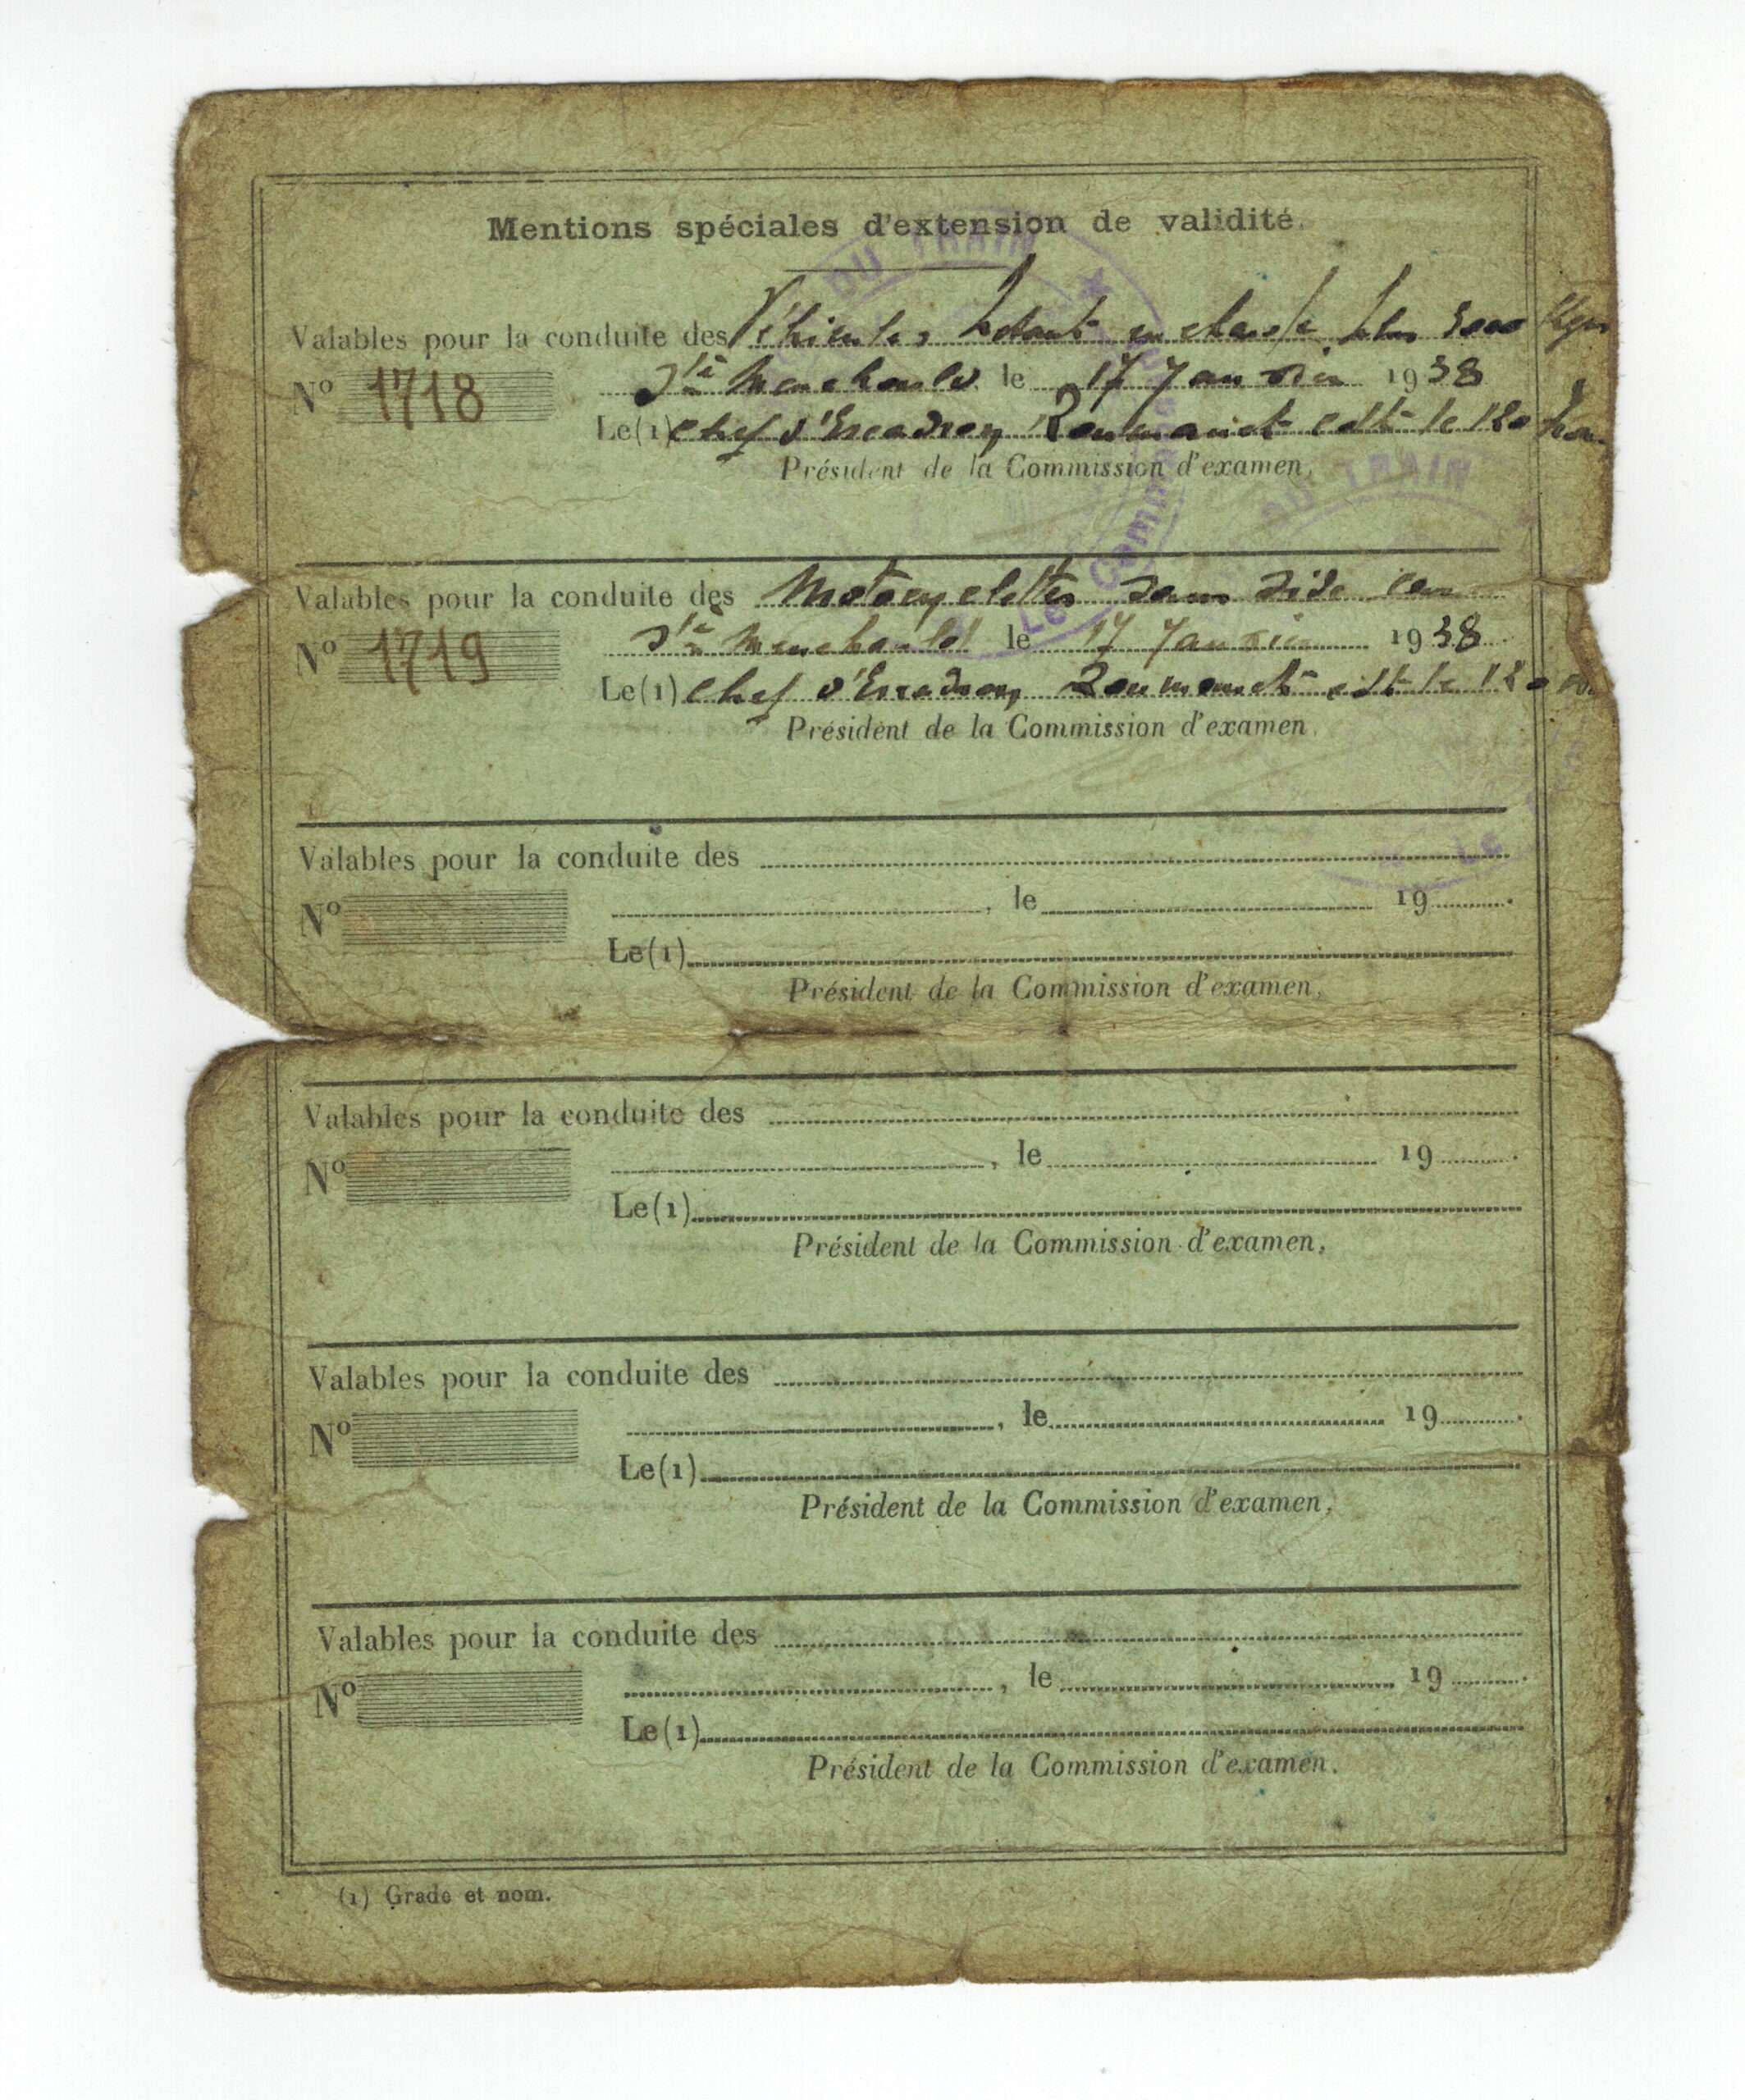 Mentions spéciales d'extension de validité.
DU TRAIN
Valables pour la conduite des Véhicules en charge plus 3000 Kgs
N° 1718 Ste Menehould le 17 Janvier 1938
Le (1) Chef d'Escadron Cdt le
Président de la Commission d'examen,
Le Commandant
DU TRAIN
Valables pour la conduite des Motocyclettes sans side car
N° 1719 Ste Menehould le 17 Janvier 1938
Le (1) Chef d'Escadron Cdt le
Président de la Commission d'examen,
Le
Valables pour la conduite des
N° , le 19 .
Le (1)
Président de la Commission d'examen,
Valables pour la conduite des
N° , le 19 .
Le (1)
Président de la Commission d'examen,
Valables pour la conduite des
N° , le 19 .
Le (1)
Président de la Commission d'examen,
Valables pour la conduite des
N° , le 19 .
Le (1)
Président de la Commission d'examen.
(1) Grade et nom.